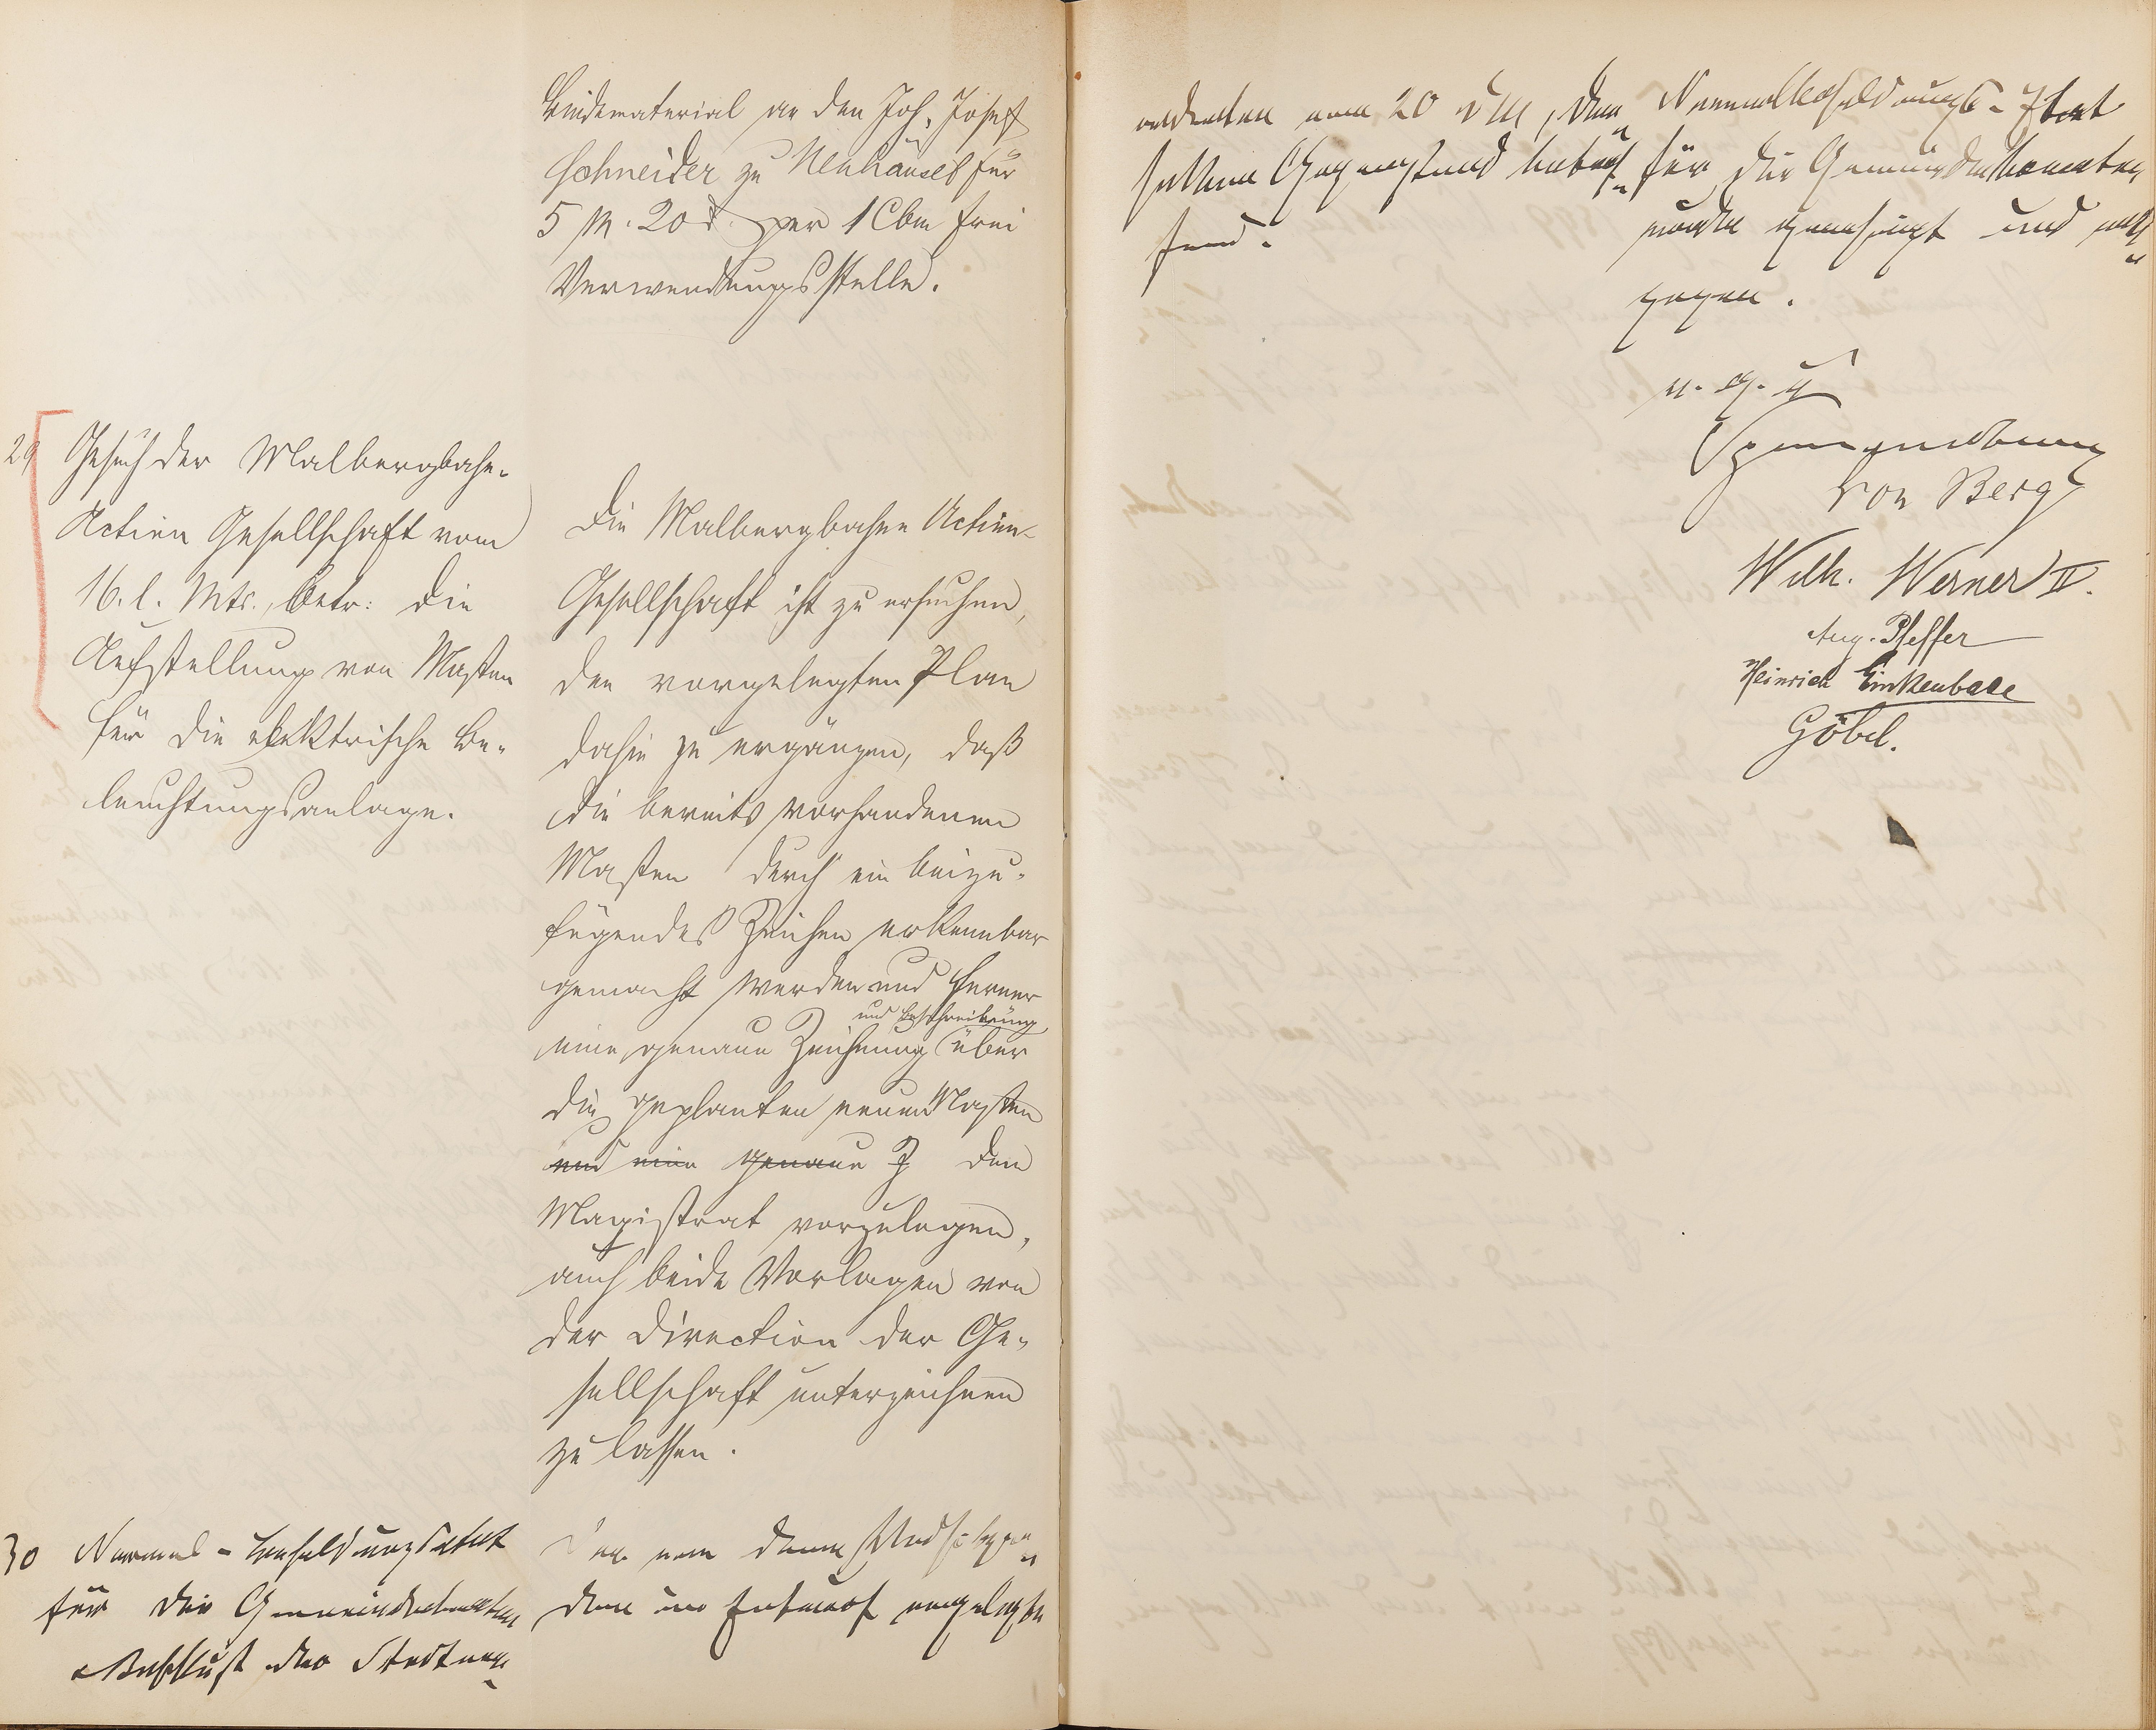 Bindematerial an den Joh. Josef
Schneider zu Neuhäusel für
5 M. 20 ₰ per 1 Cbm frei
Verwendungsstelle.
29 Gesuch der Malbergbahn-
Actien Gesellschaft vom
16. l. Mts., betr: die
Aufstellung von Masten
für die elektrische Be-
leuchtungsanlage.
Die Malbergbahn Actien-
Gesellschaft ist zu ersuchen,
den vorgelegten Plan
dahin zu ergänzen, daß
die bereits vorhandenen
Masten durch ein beizu-
fügendes Zeichen erkennbar
gemacht werden und ferner
und Beschreibung
eine genaue Zeichnung über
die geplanten neuen Masten
und eine genaue Z dem
Magistrat vorzulegen,
auch beide Vorlagen von
der Direction der Ge-
sellschaft unterzeichnen
zu lassen.
30 Normal-Besoldungsetat
für die Gemeindebeamten
Beschluß der Stadtver-
Der von dem
dem im Entwurf vorgelegte
ordneten vom 20 d M, den
selben Gegenstand betref-
fend.
Normalbesoldungs-Etat
für die Gemeindebeamten
wurde genehmigt und voll-
zogen.
v. g. u
Spangenberg
von Berg
Wilh. Werner II.
Aug. Pfeffer
Heinrich Linkenbach
Göbel.